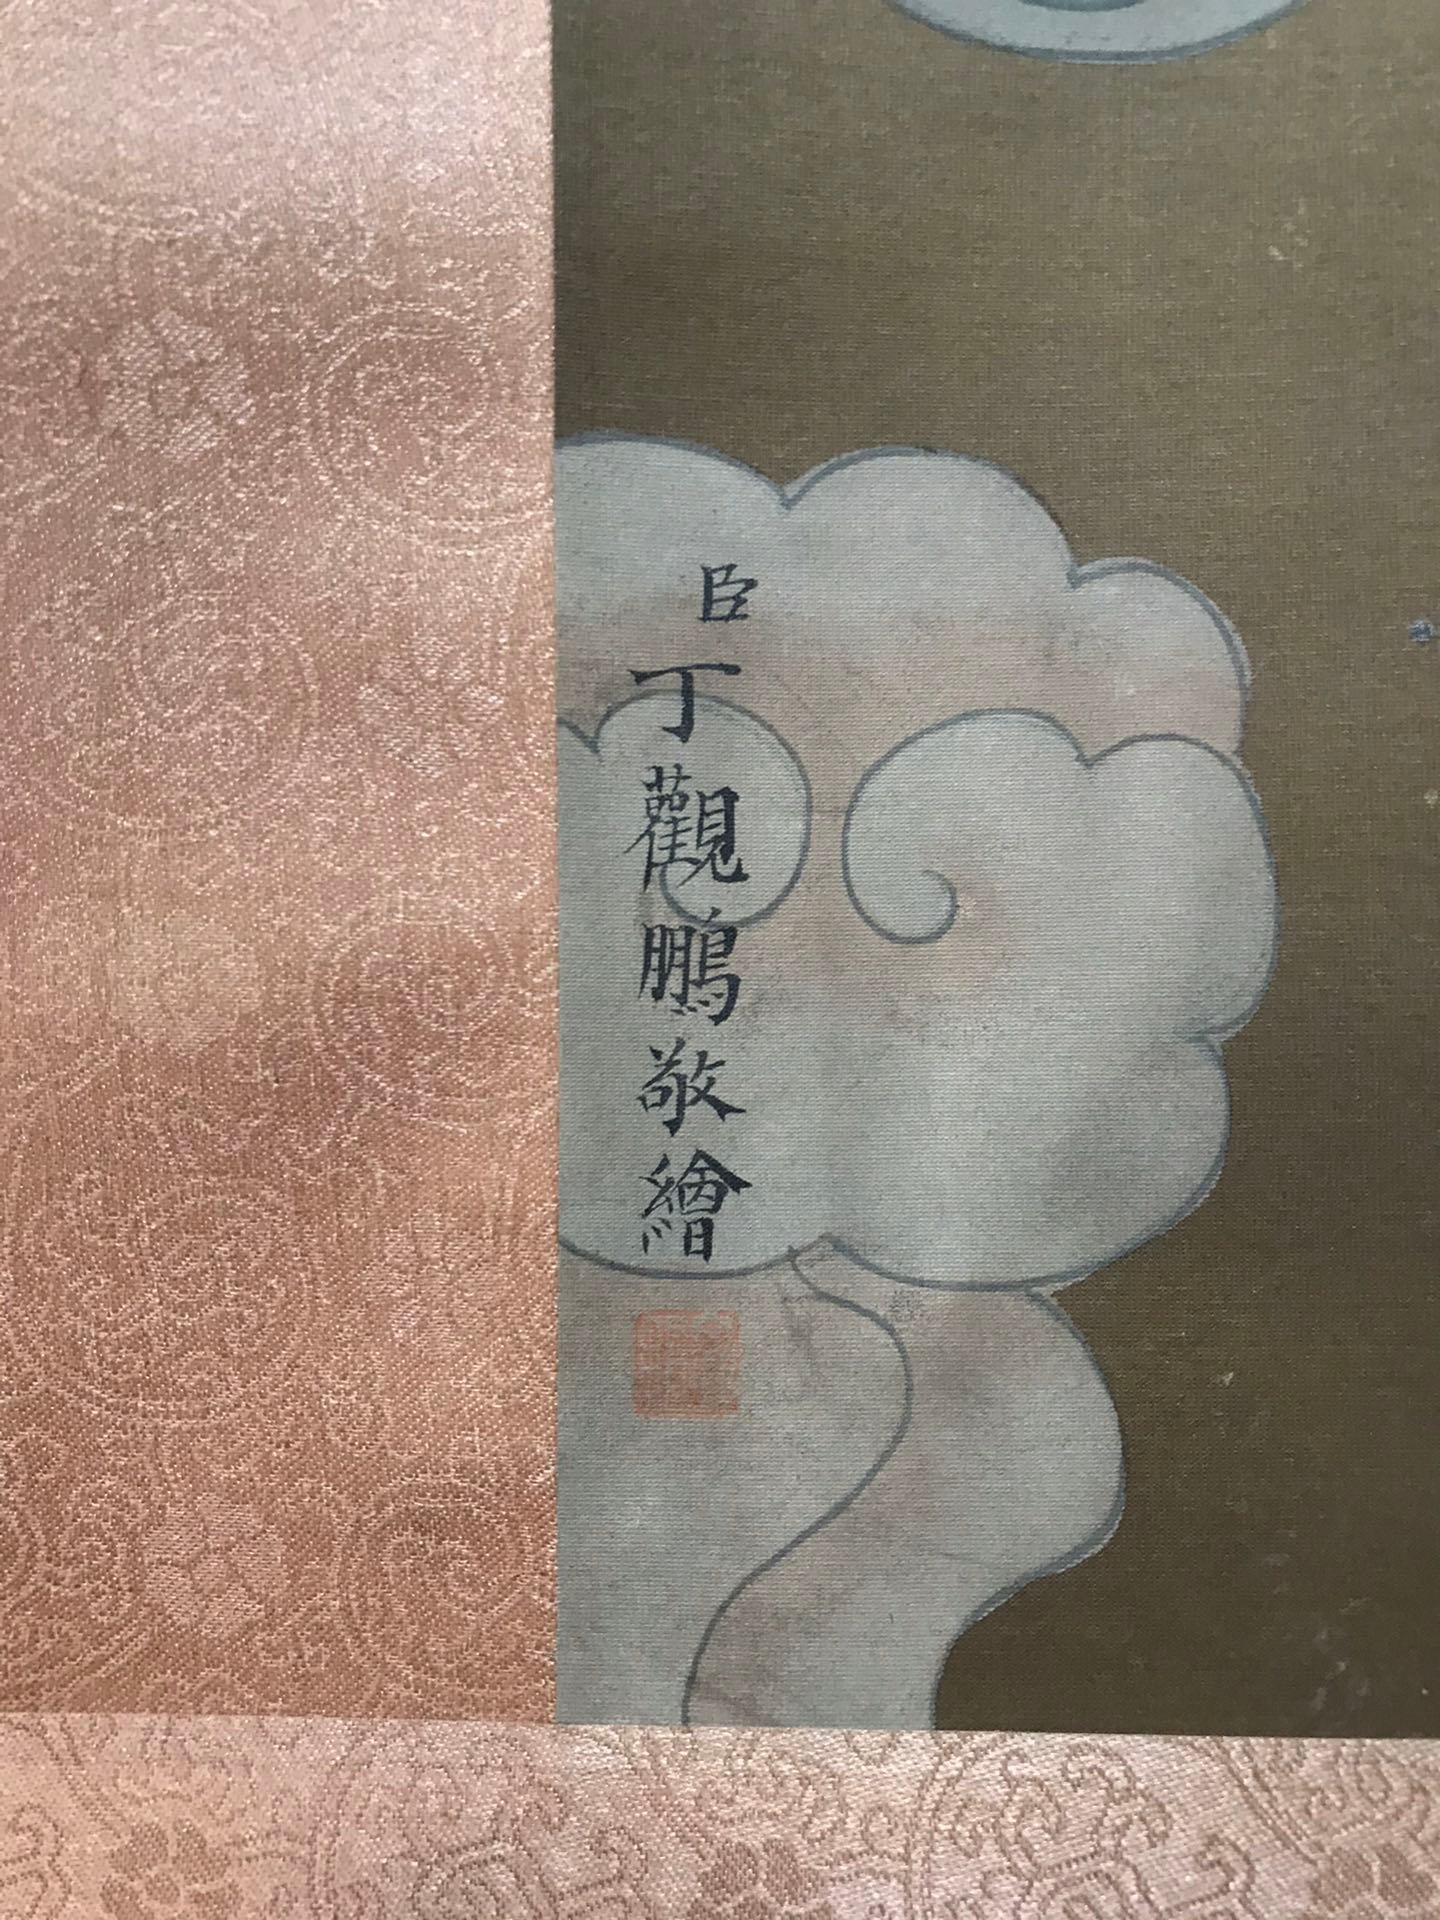 臣丁觀鵬敬繪